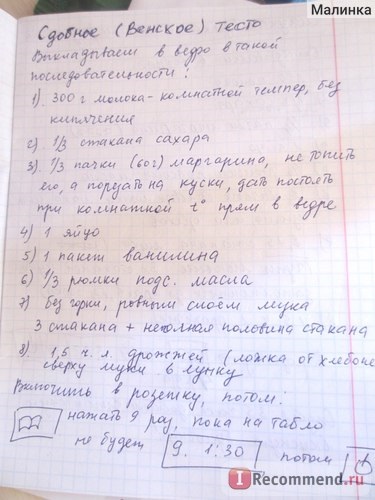 Малинка
Сдобное (Венское) тесто
Выкладываем в ведро в такой
последовательности:
1). 300 г молока - комнатной темпер, без
кипячения
2) 1/3 стакана сахара
3). 1/3 пачки (60г) маргарина, не топить
его, а порезать на куски, дать постоять
при комнатной t° прям в ведре
4) 1 яйцо
5) 1 пакет ванилина
6) 1/3 рюмки подс. масла
7) Без горки, ровным слоем мука
3 стакана + неполная половина стакана
8). 1,5 ч. л. дрожжей (ложка от хлебопе
сверху муки в лунку
Включить в розетку, потом:
нажать 9 раз, пока на табло
не будет 9. 1:30 потом
iRecommend.ru